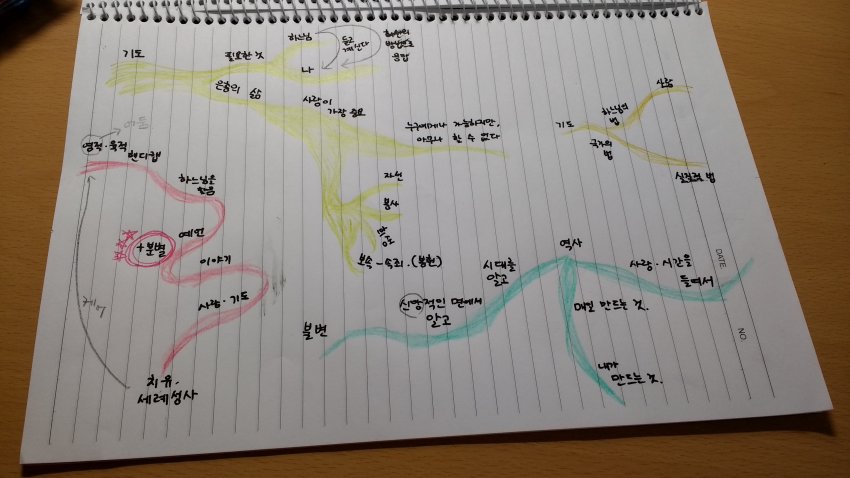 기도
필요한 것
하느님
나
듣고
계신다
방법으로
응답
은총의 삶
사랑이
가장 중요
누구에게나 가능하지만,
아무나 할 수 없다
자선
봉사
보속 - 속죄. (봉헌)
기도
하느님의
법
사랑
국가의
법
실질적 법
영적·육적
핸디캡
하느님은
예언
+분별
이야기
사랑·기도
제거
치유.
세례성사
역사
시대를
알고
신앙적인 면에서
알고
불변
사랑·시간을
들여서
매일 만드는 것.
내가
만드는 것.
DATE
NO